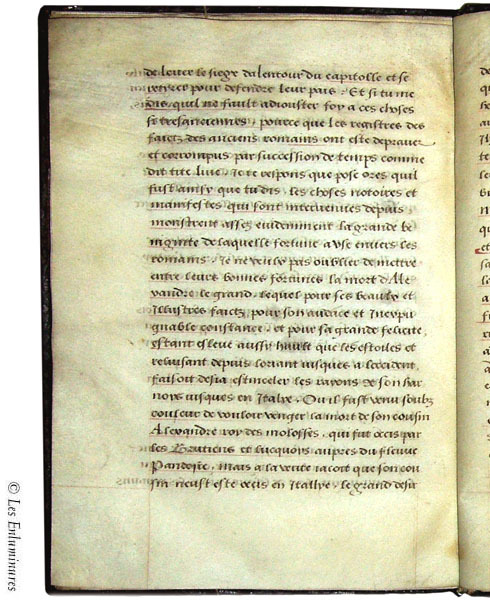 de lever le siege dalentour du capitolle et se
retirer pour defendre leur païs. Et si tu me
dis, quil ne fault adiouster foy a ces choses
si tresanciennes, pource que les registres des
faictz des anciens romains ont este depravez
et corrompus par succession de temps comme
dit tite live. Je te respons que pose ores quil
fust ainsy que tu dis, les choses notoires et
manifestes qui sont intervenues depuis
monstrent assez evidemment la grande be
nignite de laquelle fortune a use envers les
romains. Je ne veulx pas oublier de mettre
entre leurs bonnes fortunes la mort d'Ale
xandre le grand, lequel pour ses beaulx et
Illustres faictz, pour son audace et Inexpu
gnable constance, et pour sa grande felicite,
estant esleve aussy hault que les estoiles et
reluisant depuis loriant iusques a loccident,
faisoit desia estinceler les rayons de son har
noys iusques en Italye. Ou il fust venu soubz
couleur de vouloir venger la mort de son cousin
Alexandre roy des molosses, qui fut occis par
les Brutiens et lucquois aupres du fleuve
Pandosie, mais a la verite iacoit que son cou
sin neust este occis en Itallye, le grand desir
© Les Enluminures